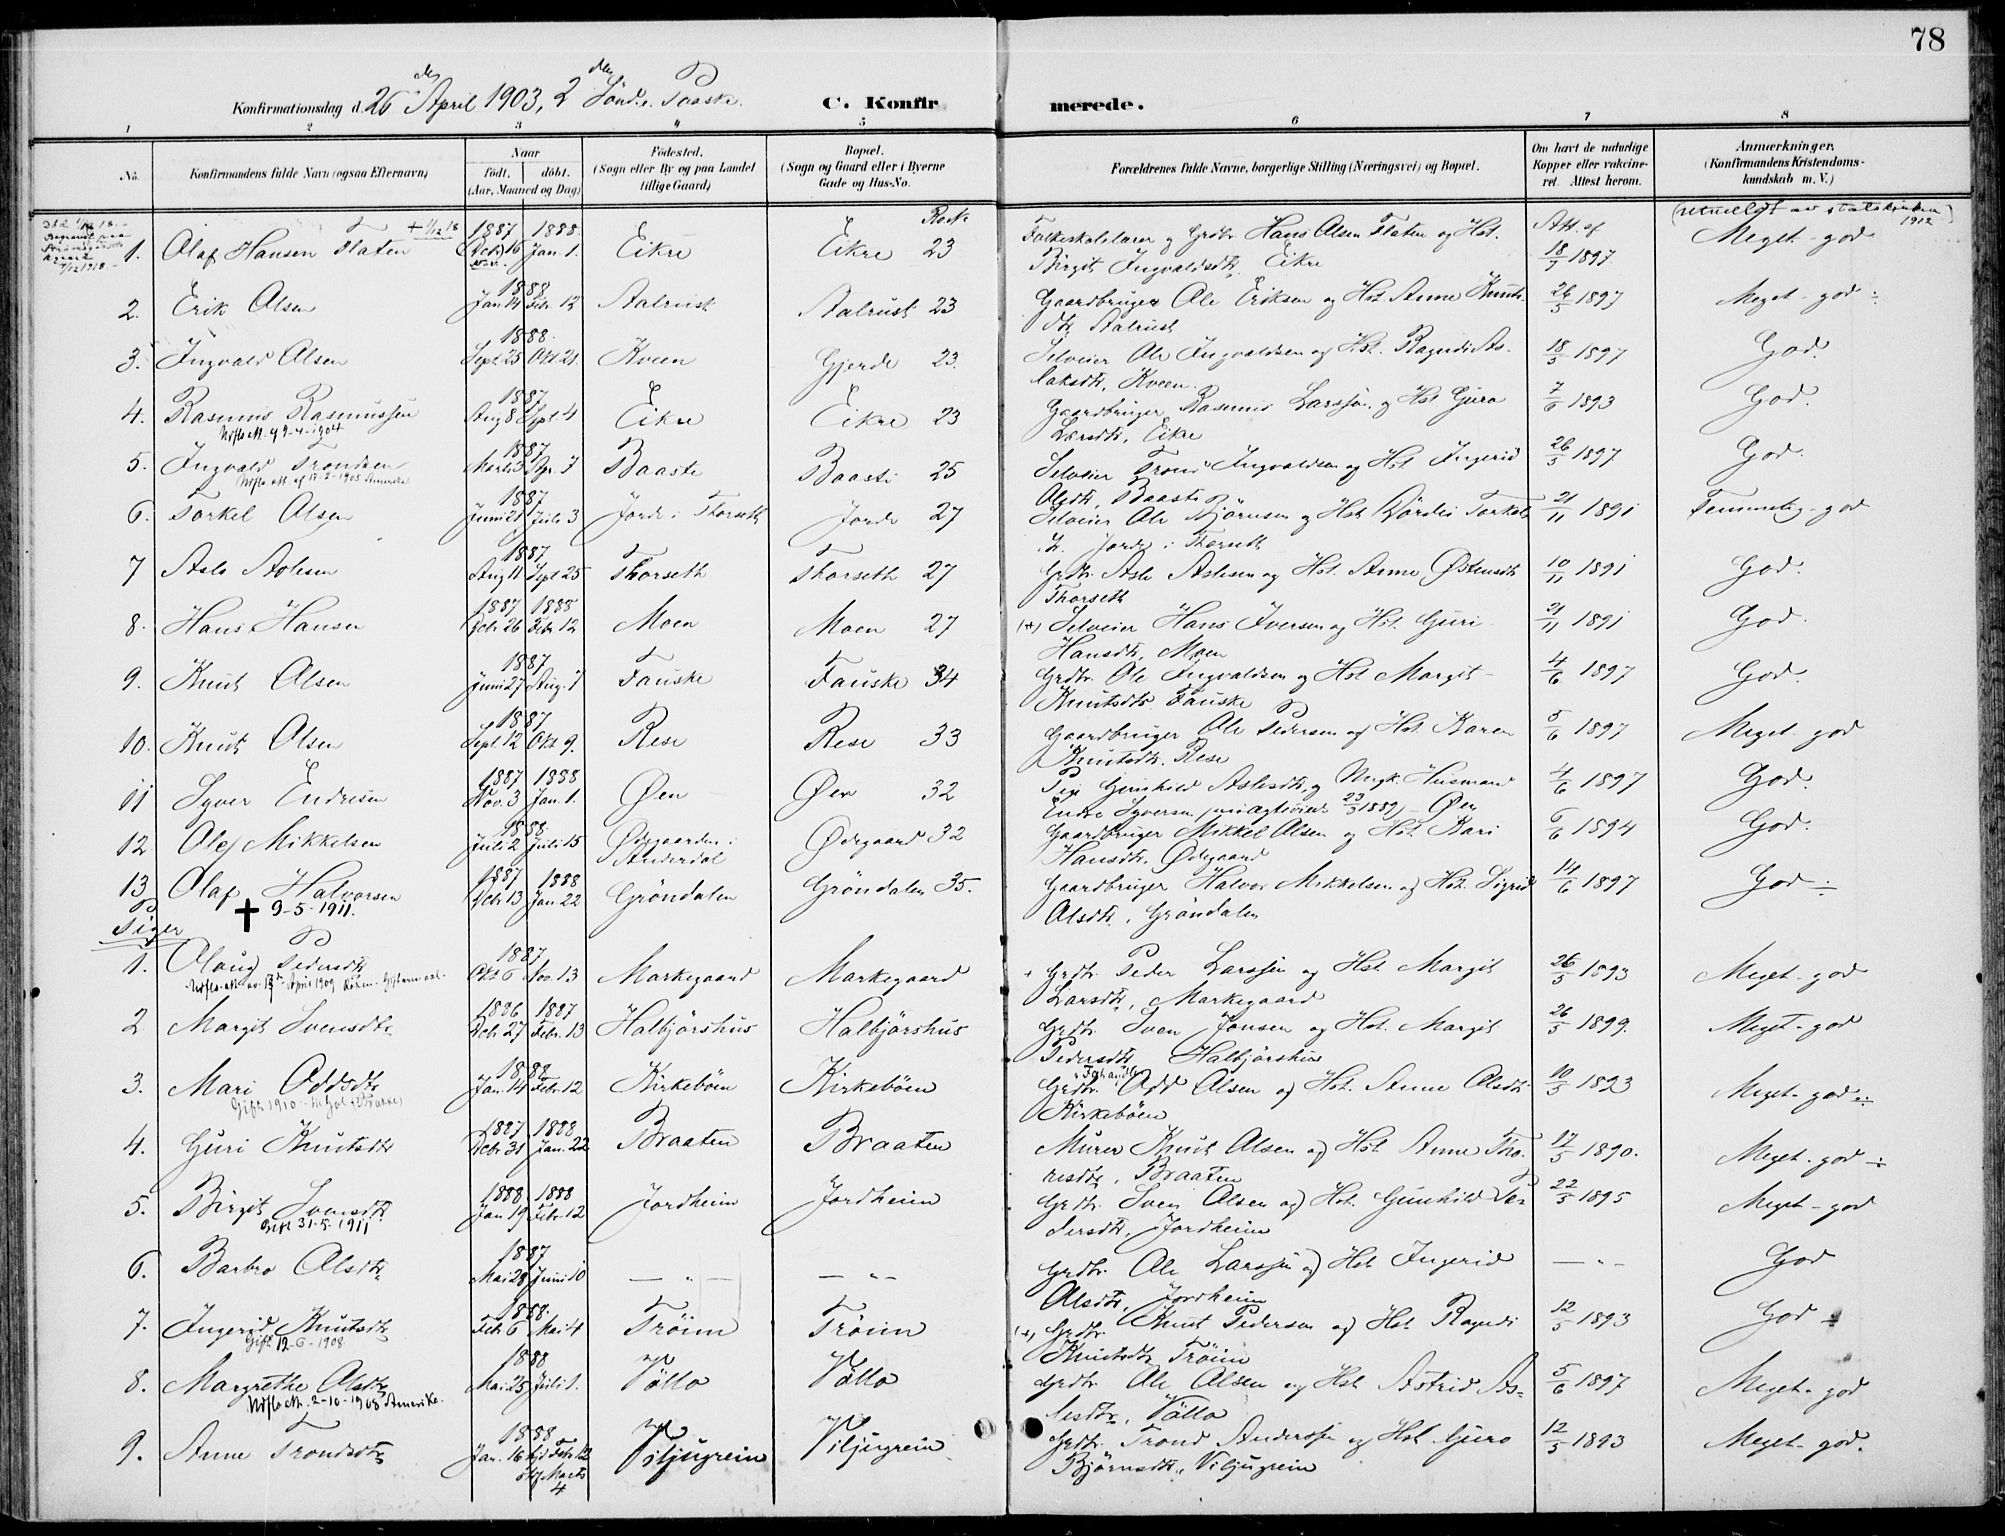 78
Konfirmationsdag d. 26 April 1903, 2 Sönd. e. Paaske. C. Konfirmerede.
1 2 3 4 5 6 7 8
No. Konfirmandens fulde Navn (ogsaa Efternavn) Naar født. døbt. (Aar, Maaned og Dag) Fødested. (Sogn eller By og paa Landet tillige Gaard) Bopæl. (Sogn og Gaard eller i Byerne Gade og Hus-No. Forældrenes fulde Navne, borgerlige Stilling (Næringsvei) og Bopæl. Om havt de naturlige Kopper eller vakcineret. Attest herom. Anmærkninger. (Konfirmandens Kristendomskundskab m. V.)
Rode
(Utmeldt av statskirken 1912)
1. Olaf Hansen Flaten 1887 1888 Jan. 1. Eikre Eikre 23 Folkeskolelærer og Grdbr. Hans Olsen Flaten og Hst. Att. af 18/5 1897. Meget-god
Birgit Ingvaldsdtr. Eikre
2. Erik Olsen 1888 Jan 14 Febr. 12 Aalrust Aalrust 23 Gaardbruger Ole Eriksen og Hst. Anne Knuts- 26/5 1897 Meget-god
dtr. Aalrust
3. Ingvald Olsen 1888. Sept. 23 Okt 21. Kveen Gjerde 23. Selveier Ole Ingvaldsen og Hst. Ragndi As- 18/5 1897 God.
laksdtr. Kveen.
4. Rasmus Rasmussen 1887 Aug 8 Sept 4 Eikre Eikre 23 Gaardbruger Rasmus Larssøn og Hst Guro 7/6 1893 God.
9-4-1904
Larsdtr. Eikre
5. Ingvald Trondsen 1887 Baaste Baaste 25 Selveier Trond Ingvaldsen og Hst Ingerid 26/5 1897 God.
Olsdtr. Baaste
6. Torkel Olsen 1887 Juni 21 Juli 3 Jorde i Thorseth Jorde 27 Selveier Ole Bjørnsen og Hst Dördei Torkels 21/11 1891 Temmelig-god
dtr. Jorde i Thorseth
7 Asle Aslesen 1887 Aug 11 Sept 25 Thorseth Thorseth 27 Grdbr. Asle Aslesen og Hst. Anne Østensdtr 10/11 1891 God.
Thorseth
8. Hans Hansen 1887 1888 Decbr 26 Febr. 12 Moen Moen 27 Selveier Hans Iversen og Hst. Guri 21/11 1891 God.
Hansdtr. Moen
9. Knut Olsen 1887 Juni 27 Aug. 7 Fauske Fauske 34 Grdbr. Ole Ingvaldsen og Hst Margit 4/6 1897 God.
Knutsdtr. Fauske
10. Knut Olsen 1887 Sept 12 Okt 9. Rese Rese 33 Gaardbruger Ole Pedersen og Hst. Karen 5/6 1897 Meget-god
Knutsdtr. Rese
11 Syver Endresen 1887 1888 Nov. 3 Jan. 1. Øen Øen 32 Pige Gunhild Aslesdtr. og Ungk. Husmand 4/6 1897 God.
Endre Syversen, 23/3 1889) - Øen
12 Ole Mikkelsen 1888. Juli 2 Juli 15 Ødegaarden i Anderdal Ødegaard 32 Gaardbruger Mikkel Olsen og Hst Kari 6/6 1894 God.
Hansdtr. Ødegaard
13 Olaf Halvorsen 1887 1888 Decbr 13 Jan 22 Gröndalen Gröndalen 35. Gaardbruger Halvor Mikkelsen og Hst. Sigrid 14/6 1897 God
✝ 9-5-1911. Olsdtr. Gröndalen
Piger
1. Olaug Pedersdtr 1887 Okt 6 Nov. 13 Markegaard Markegaard Grdbr. Peder Larssøn og Hst Margit 26/5 1893 Meget-god
Larsdtr, Markegaard
2 Margit Svensdtr 1886 1887 Decbr. 27 Febr. 13 Halbjörshus Halbjörshus Grdbr. Sven Jonsen og Hst. Margit 26/5 1899. Meget-god
Pedersdtr. Halbjörshus
3. Mari Oddsdtr 1888 Jan. 14 Febr. 12 Kirkebøen Kirkebøen Grdbr. Odd Olsen og Hst. Anne Olsdtr. 10/5 1893 Meget-god
Gift 1910 Kirkebøen
4. Guri Knutsdtr 1887 1888 Decbr. 31 Jan. 22 Braaten Braaten Murer Knut Olsen og Hst Anne Tho- 17/5 1890. Meget-god
resdtr, Braaten
5. Birgit Svensdtr 1888 1888 Jan 19 Febr. 12 Jordheim Jordheim Grdbr. Sven Olsen og Hst. Gunhild Pe- 22/5 1895 Meget-god
Gift 31-5-1911 dersdtr. Jordheim
6. Barbro Olsdtr. 1887 Mai 28 Juni 10 — „ — — „ — Grdbr. Ole Larssøn og Hst Ingerid — „ - God
Olsdtr. Jordheim
7. Ingerid Knutsdtr 1888. Febr 6 Mai 4 Tröim Tröim Grdbr. Knut Pedersen og Hst Ragndi 12/5 1893 God
Gift 12-6-1908 Knutsdtr. Tröim
8. Margrethe Olsdtr 1888 Mai 25 Juli 1. Völlo Völlo Grdbr. Ole Olsen og Hst Astrid As- 5/6 1897 Meget-god
2-10-1908 Amerika. lesdtr, Völlo
9. Anne Trondsdtr 1888 Jan. 16 Febr. 12 Marts 4 Viljugrein Viljugrein Grdbr. Trond Anderssøn og Hst Guro 12/5 1893 Meget-god.
Björnsdtr, Viljugrein